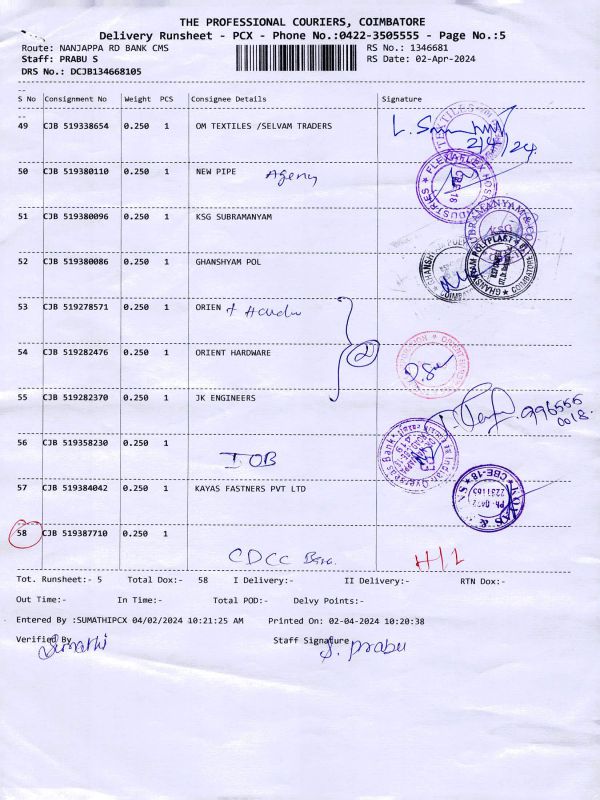 THE PROFESSIONAL COURIERS, COIMBATORE
Delivery Runsheet - PCX - Phone No.:0422-3505555 - Page No.:5
Route: NANJAPPA RD BANK CMS RS No.: 1346681
Staff: PRABU S RS Date: 02-Apr-2024
DRS No.: DCJB134668105
S No Consignment No Weight PCS Consignee Details Signature
49 CJB 519338654 0.250 1 OM TEXTILES /SELVAM TRADERS
2/4/24
50 CJB 519380110 0.250 1 NEW PIPE Agency
51 CJB 519380096 0.250 1 KSG SUBRAMANYAM
52 CJB 519380086 0.250 1 GHANSHYAM POL
GHANSHYAM POLYPLAST
COIMBATORE
53 CJB 519278571 0.250 1 ORIEN
54 CJB 519282476 0.250 1 ORIENT HARDWARE 2
55 CJB 519282370 0.250 1 JK ENGINEERS
996555
0018.
56 CJB 519358230 0.250 1
IOB
Indian Overseas Bank
57 CJB 519384042 0.250 1 KAYAS FASTNERS PVT LTD
CBE-18
58 CJB 519387710 0.250 1
CDCC H/L
Tot. Runsheet:- 5 Total Dox:- 58 I Delivery:- II Delivery:- RTN Dox:-
Out Time:- In Time:- Total POD:- Delvy Points:-
Entered By :SUMATHIPCX 04/02/2024 10:21:25 AM Printed On: 02-04-2024 10:20:38
Verified By Staff Signature
Sumathi S. Prabu